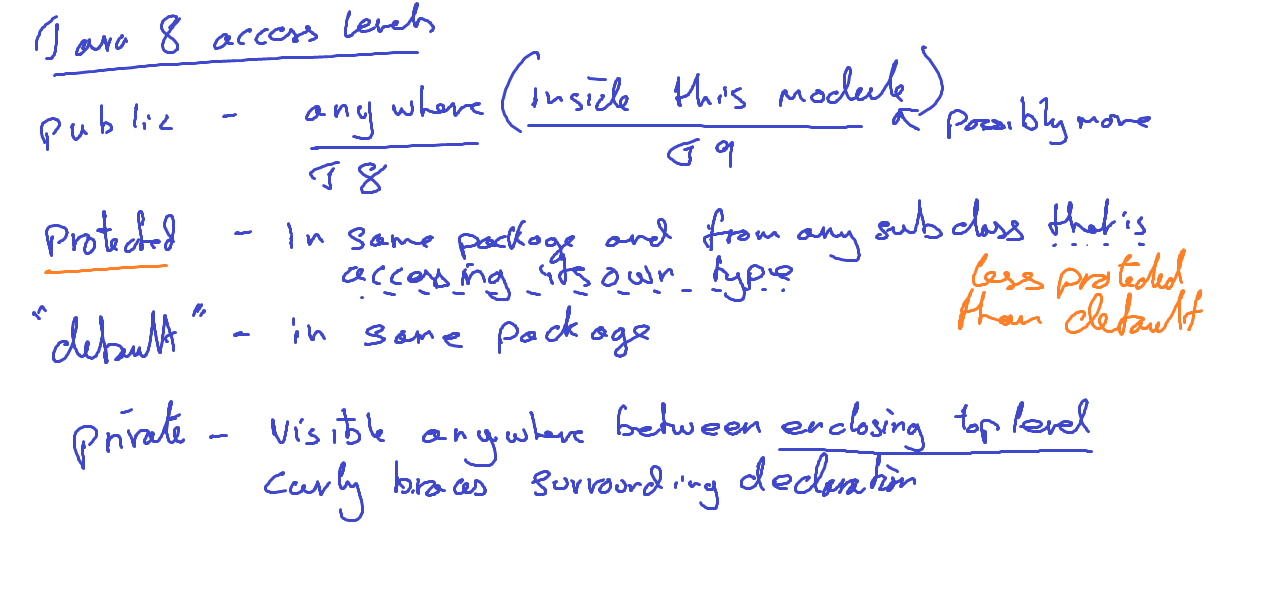 Java 8 access levels
public - anywhere (inside this module) possibly more
J8 J9
Protected - In same package and from any subclass that is
accessing its own type
less protected
than default
"default" - in same package
private - Visible anywhere between enclosing top level
curly braces surrounding declaration